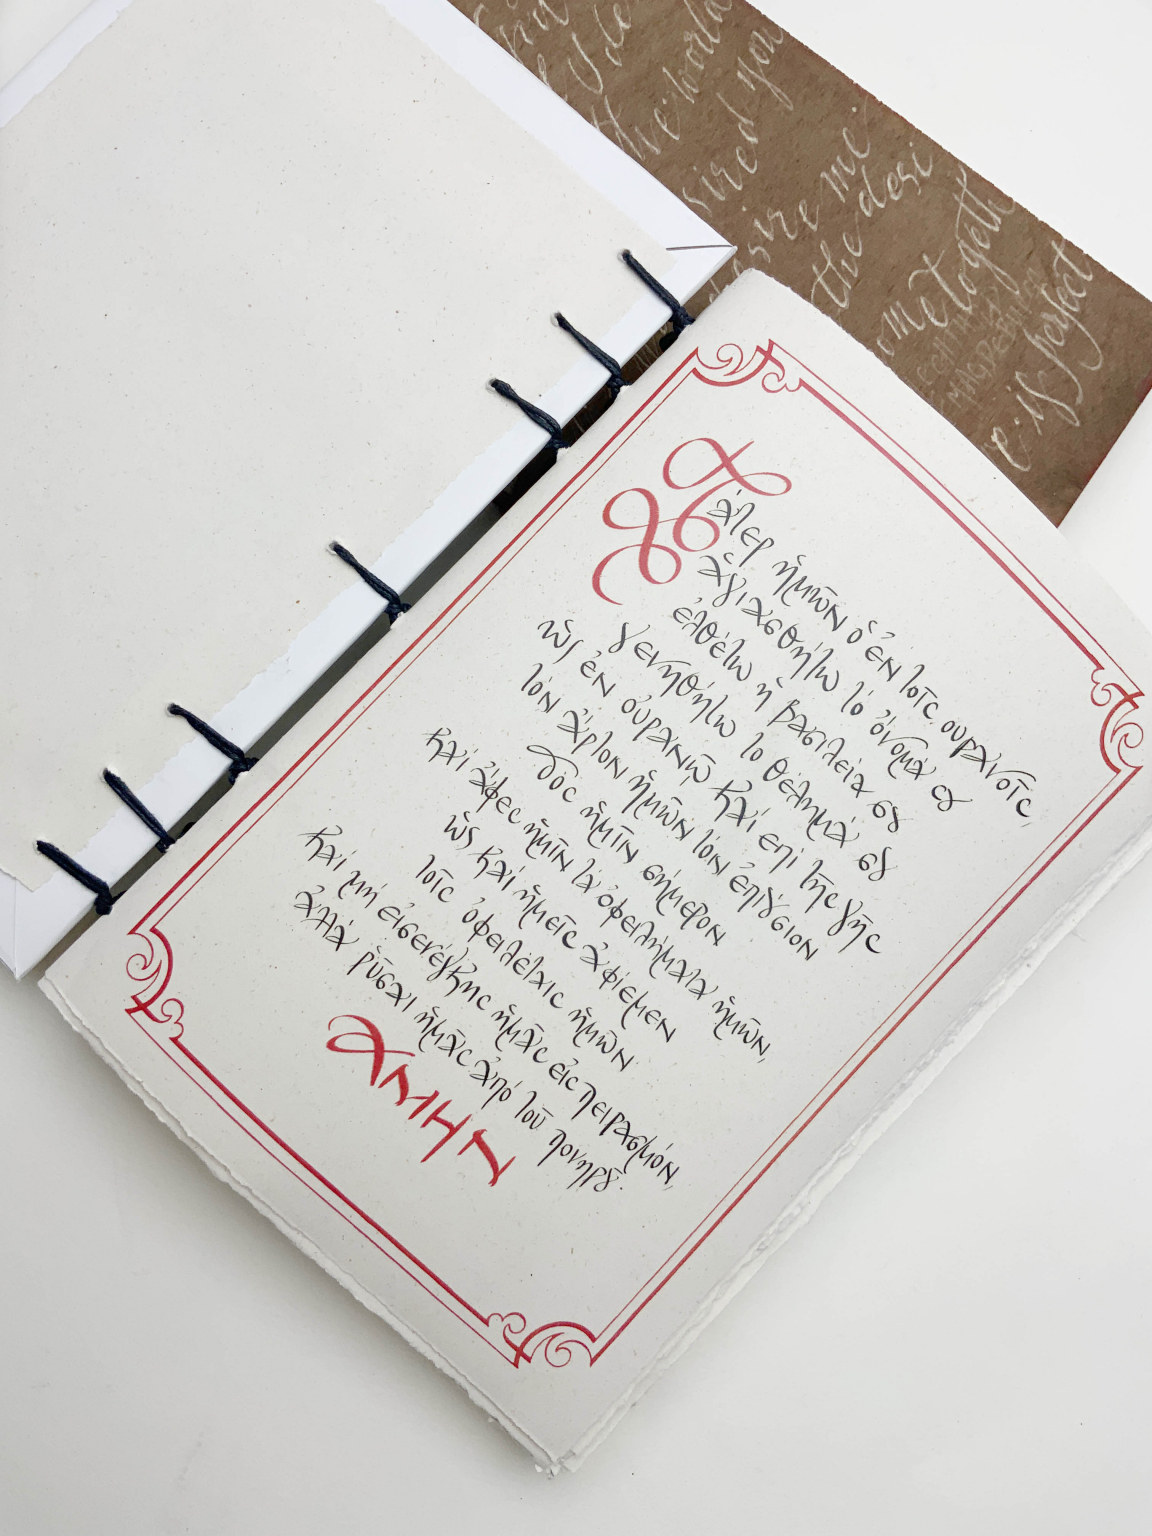 Πάτερ ἡμῶν ὁ ἐν τοῖς ουρανοῖς,
ἁγιασθήτω τό ὄνομά σȣ
ἐλθέτω ἡ βασιλεία σȣ
γενηθήτω το θέλημά σȣ
ὡς ἐν ουρανῶ καί επί της γῆς
τόν ἄρτον ἡμῶν τόν ἐπιȣ́σιον
δός ἡμῖν σήμερον
καί ἄφες ἡμῖν τά ὀφειλήματα ἡμῶν,
ὡς καί ἡμεῖς ἀφίεμεν
τοῖς ὀφειλέταις ἡμῶν
καί μή εἰσενέγκης ἡμᾶς εἰς πειρασμόν,
ἀλλά ρῦσαι ἡμᾶς ἀπό τοῦ πονηρȣ͂.
ΑΜΗΝ
the world
sired you
sire me
the desi
ome togeth
e is perfect